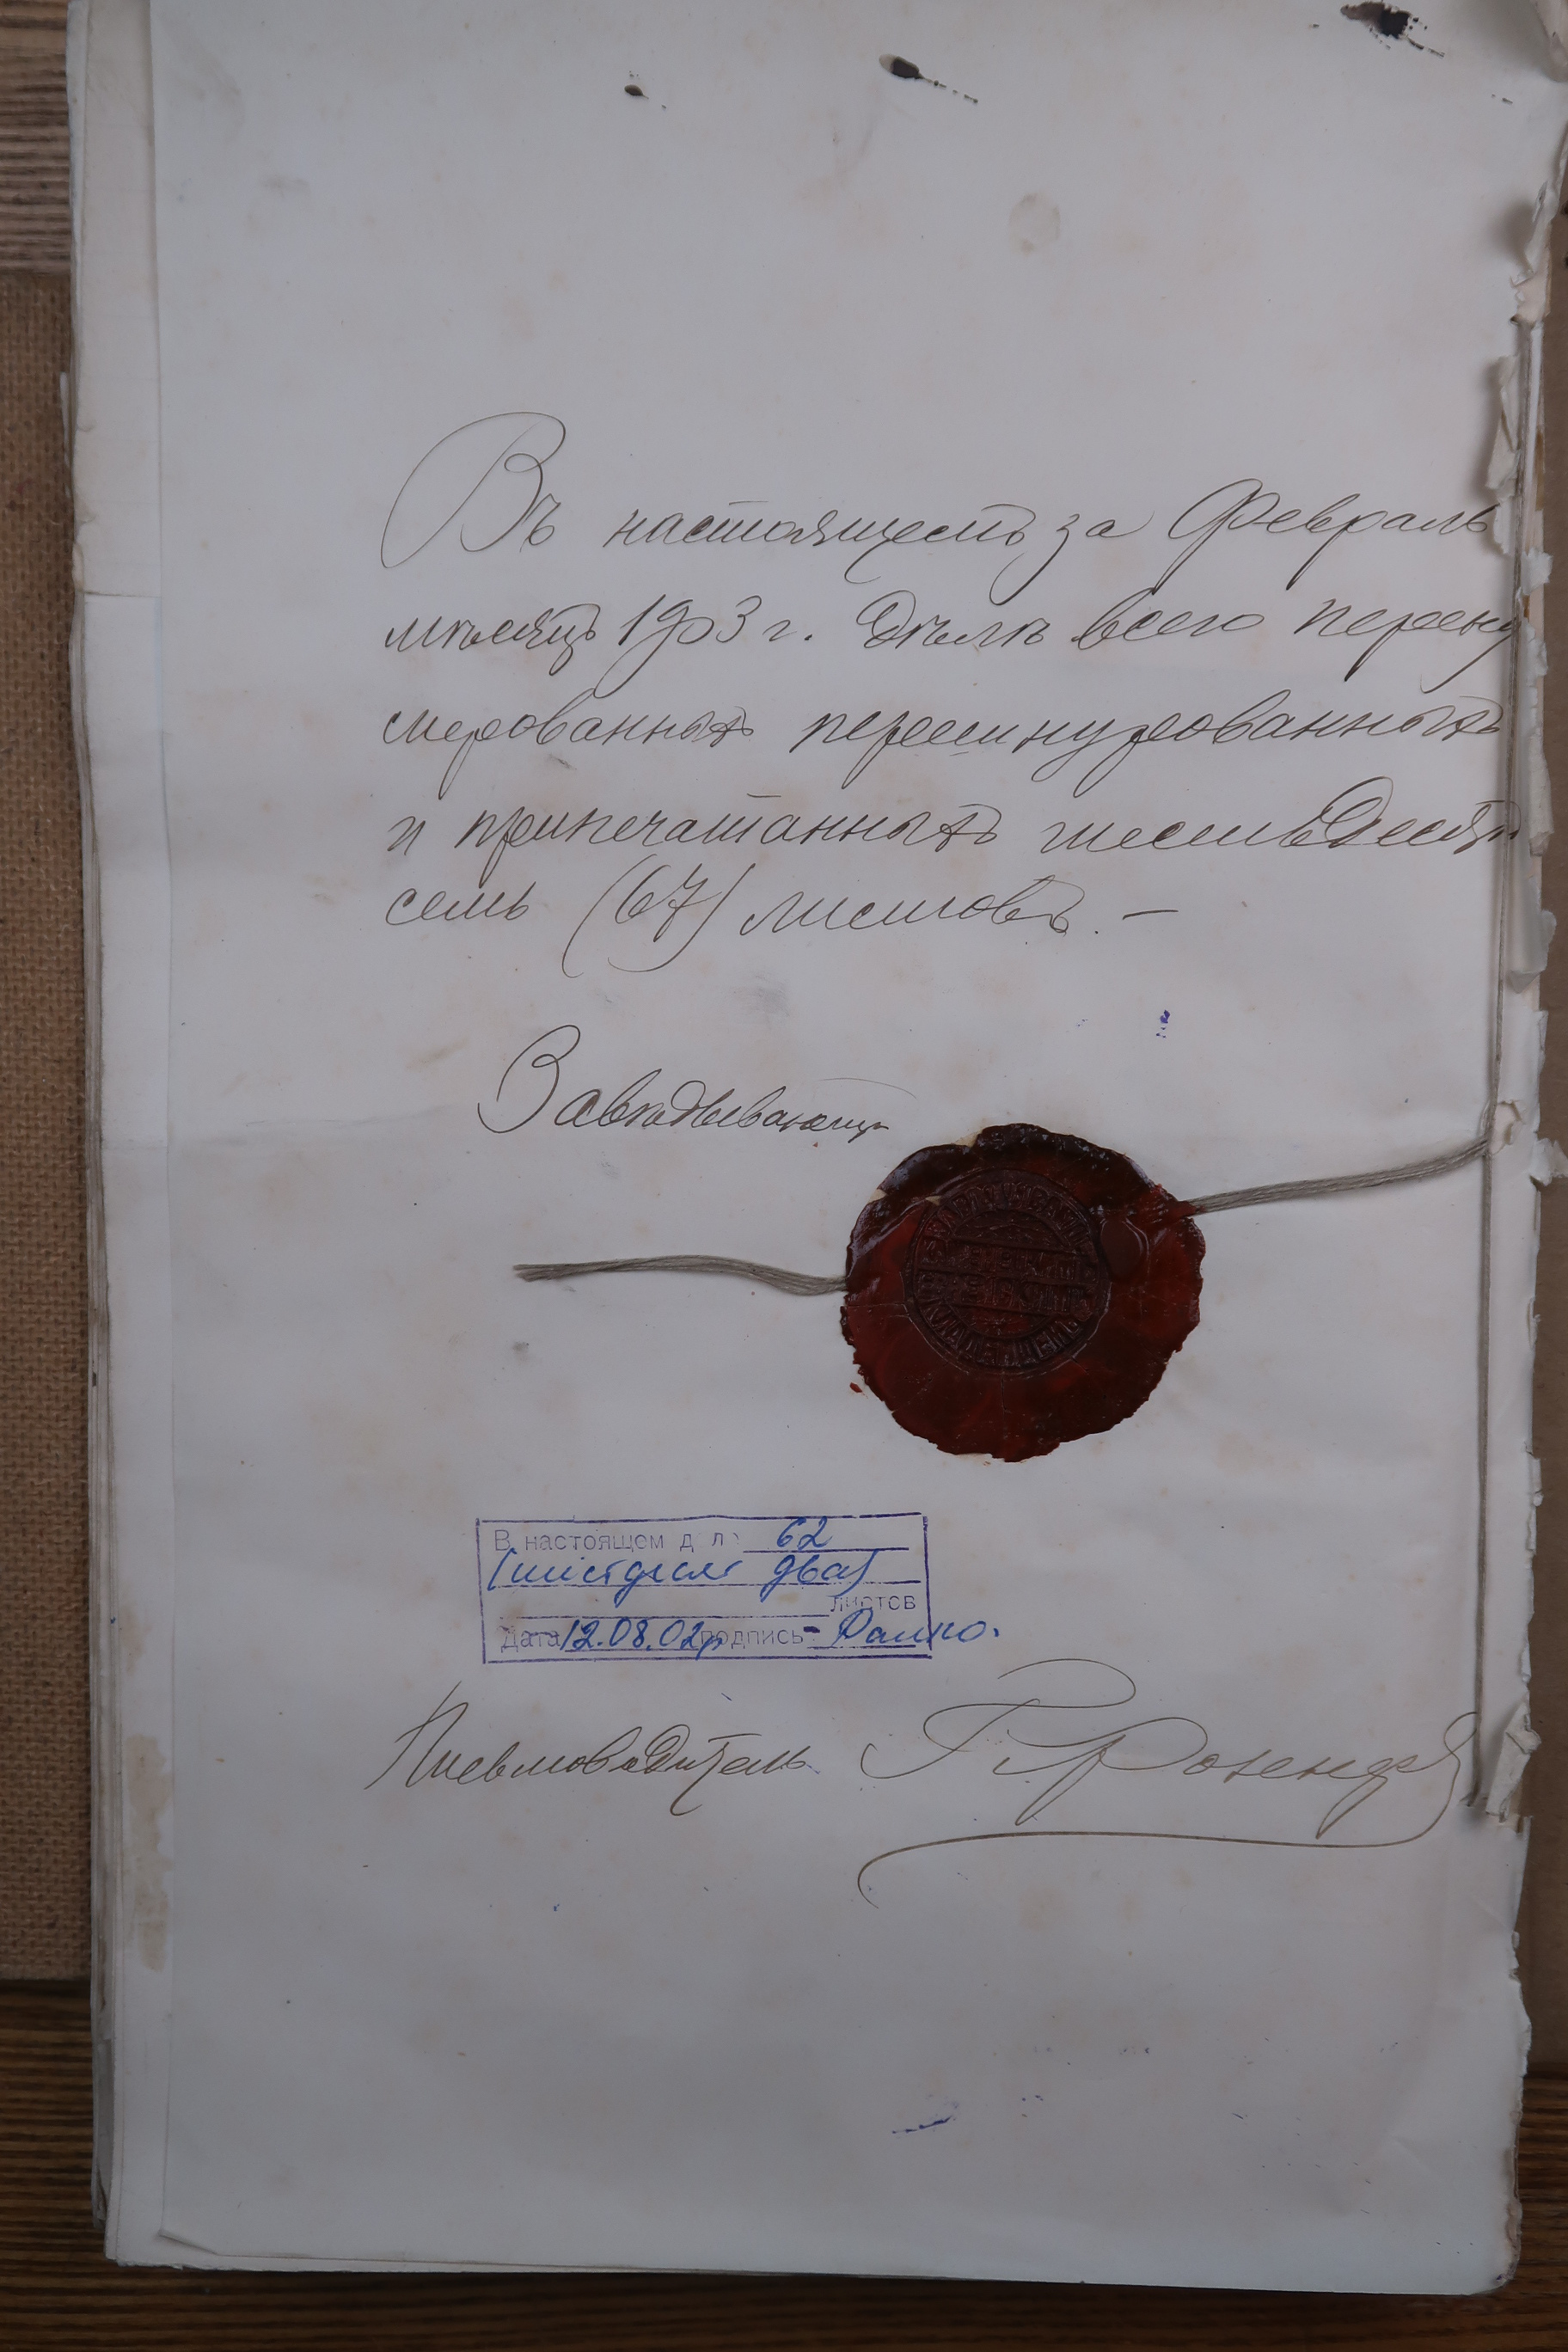 Въ настоящемъ за Февраль
мѣсяцъ 1903 г. Дѣлѣ всего перену
мерованныхъ перешнурованныхъ
и припечатанныхъ шестьдесятъ
семь (67) листовъ. —
Завѣдывающ
В настоящем д л 62
(шістдесят два)
листов
Дата 12.08.02р подпись
Письмоводитель